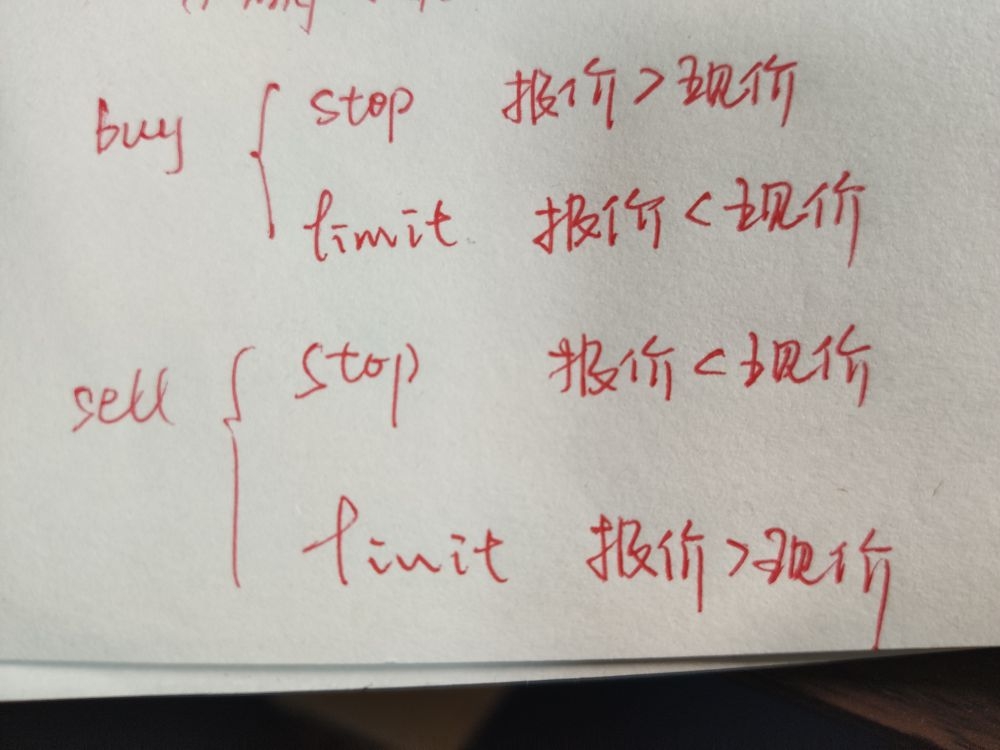 buy { stop 报价 > 现价
limit 报价 < 现价
sell { stop 报价 < 现价
limit 报价 > 现价